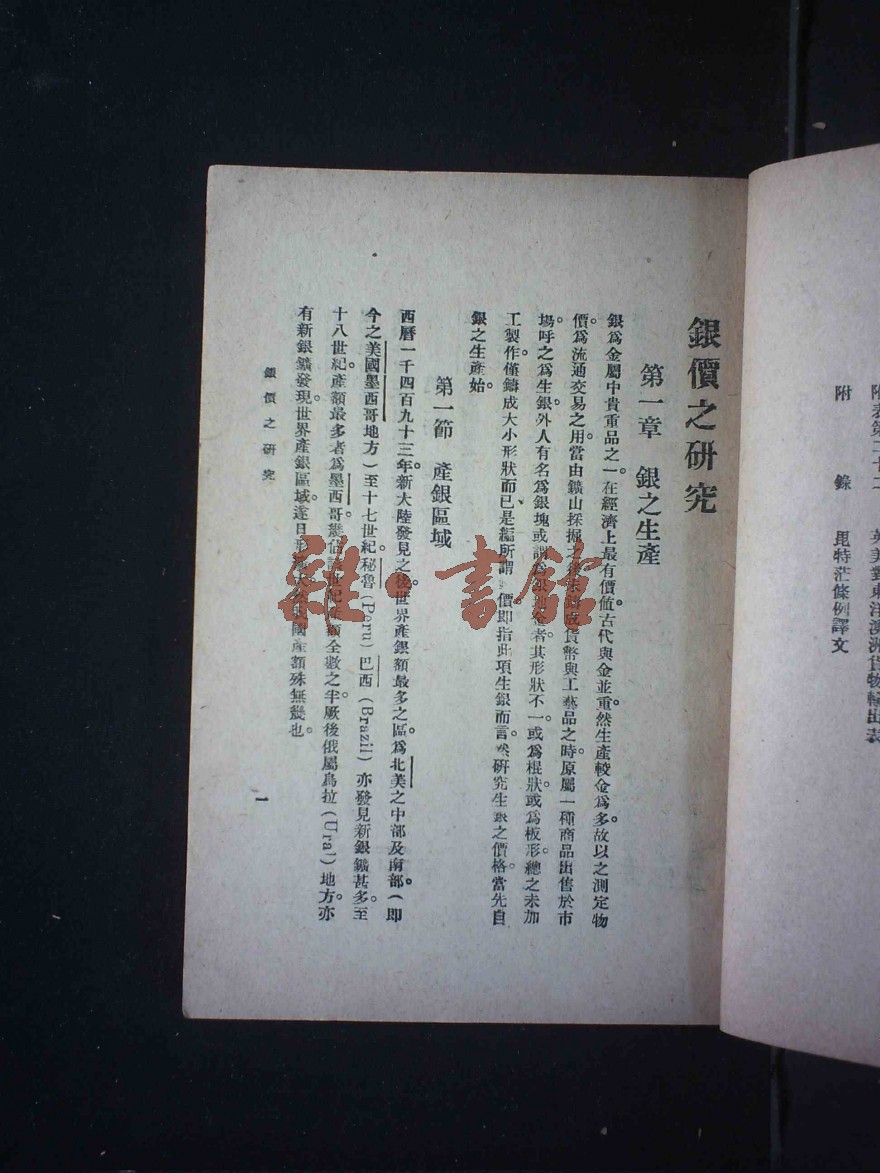 附表第二十二 英美對東洋澳洲貨物輸出表
附錄 毘特茫條例譯文
銀價之研究
第一章 銀之生產
銀爲金屬中貴重品之一。在經濟上最有價值。古代與金並重。然生產較金爲多。故以之測定物
價。爲流通交易之用。當由鑛山採掘之後。未鑄成貨幣與工藝品之時。原屬一種商品。出售於市
場。呼之爲生銀。外人有名爲銀塊。或謂爲銀者。其形狀不一。或爲棍狀。或爲板形。總之未加
工製作。僅鑄成大小形狀而已。是編所謂價。即指此項生銀而言。然研究生銀之價格。當先自
銀之生產始。
第一節 產銀區域
西曆一千四百九十三年。新大陸發見之後。世界產銀額最多之區。爲北美之中部及南部。(即
今之美國墨西哥地方)至十七世紀。秘魯(Peru)巴西(Brazil)亦發見新銀鑛甚多。至
十八世紀。產額最多者。爲墨西哥。幾佔該世紀產額全數之半。厥後俄屬烏拉(Ural)地方。亦
有新銀鑛發現。世界產銀區域。遂日形。我國產額殊無幾也。
銀價之研究
一
雜·書館